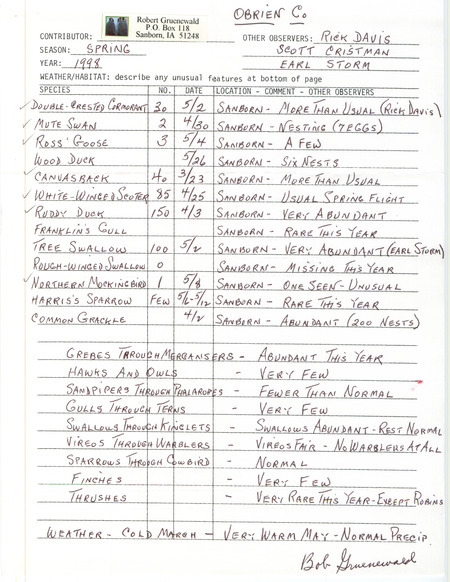 OBRIEN CO
Robert Gruenewald
P.O. Box 118
Sanborn, IA 51248
CONTRIBUTOR: OTHER OBSERVERS: RICK DAVIS
SEASON: SPRING SCOTT CRISTMAN
YEAR: 1998 EARL STORM
WEATHER/HABITAT: describe any unusual features at bottom of page
SPECIES NO. DATE LOCATION - COMMENT - OTHER OBSERVERS
✓ DOUBLE-CRESTED CORMORANT 30 5/2 SANBORN - MORE THAN USUAL (RICK DAVIS)
✓ MUTE SWAN 2 4/30 SANBORN - NESTING (7 EGGS)
✓ ROSS' GOOSE 3 5/4 SANBORN - A FEW
WOOD DUCK 5/26 SANBORN - SIX NESTS
✓ CANVASBACK 40 3/23 SANBORN - MORE THAN USUAL
✓ WHITE-WINGED SCOTER 85 4/25 SANBORN - USUAL SPRING FLIGHT
✓ RUDDY DUCK 150 4/3 SANBORN - VERY ABUNDANT
FRANKLIN'S GULL SANBORN - RARE THIS YEAR
TREE SWALLOW 100 5/2 SANBORN - VERY ABUNDANT (EARL STORM)
ROUGH-WINGED SWALLOW 0 SANBORN - MISSING THIS YEAR
✓ NORTHERN MOCKINGBIRD 1 5/8 SANBORN - ONE SEEN - UNUSUAL
HARRIS'S SPARROW FEW 5/6-5/12 SANBORN - RARE THIS YEAR
COMMON GRACKLE 4/2 SANBORN - ABUNDANT (200 NESTS)
GREBES THROUGH MERGANSERS - ABUNDANT THIS YEAR
HAWKS AND OWLS - VERY FEW
SANDPIPERS THROUGH PHALAROPES - FEWER THAN NORMAL
GULLS THROUGH TERNS - VERY FEW
SWALLOWS THROUGH KINGLETS - SWALLOWS ABUNDANT - REST NORMAL
VIREOS THROUGH WARBLERS - VIREOS FAIR - NO WARBLERS AT ALL
SPARROWS THROUGH COWBIRD - NORMAL
FINCHES - VERY FEW
THRUSHES - VERY RARE THIS YEAR - EXCEPT ROBINS
WEATHER - COLD MARCH - VERY WARM MAY - NORMAL PRECIP.
Bob Gruenewald